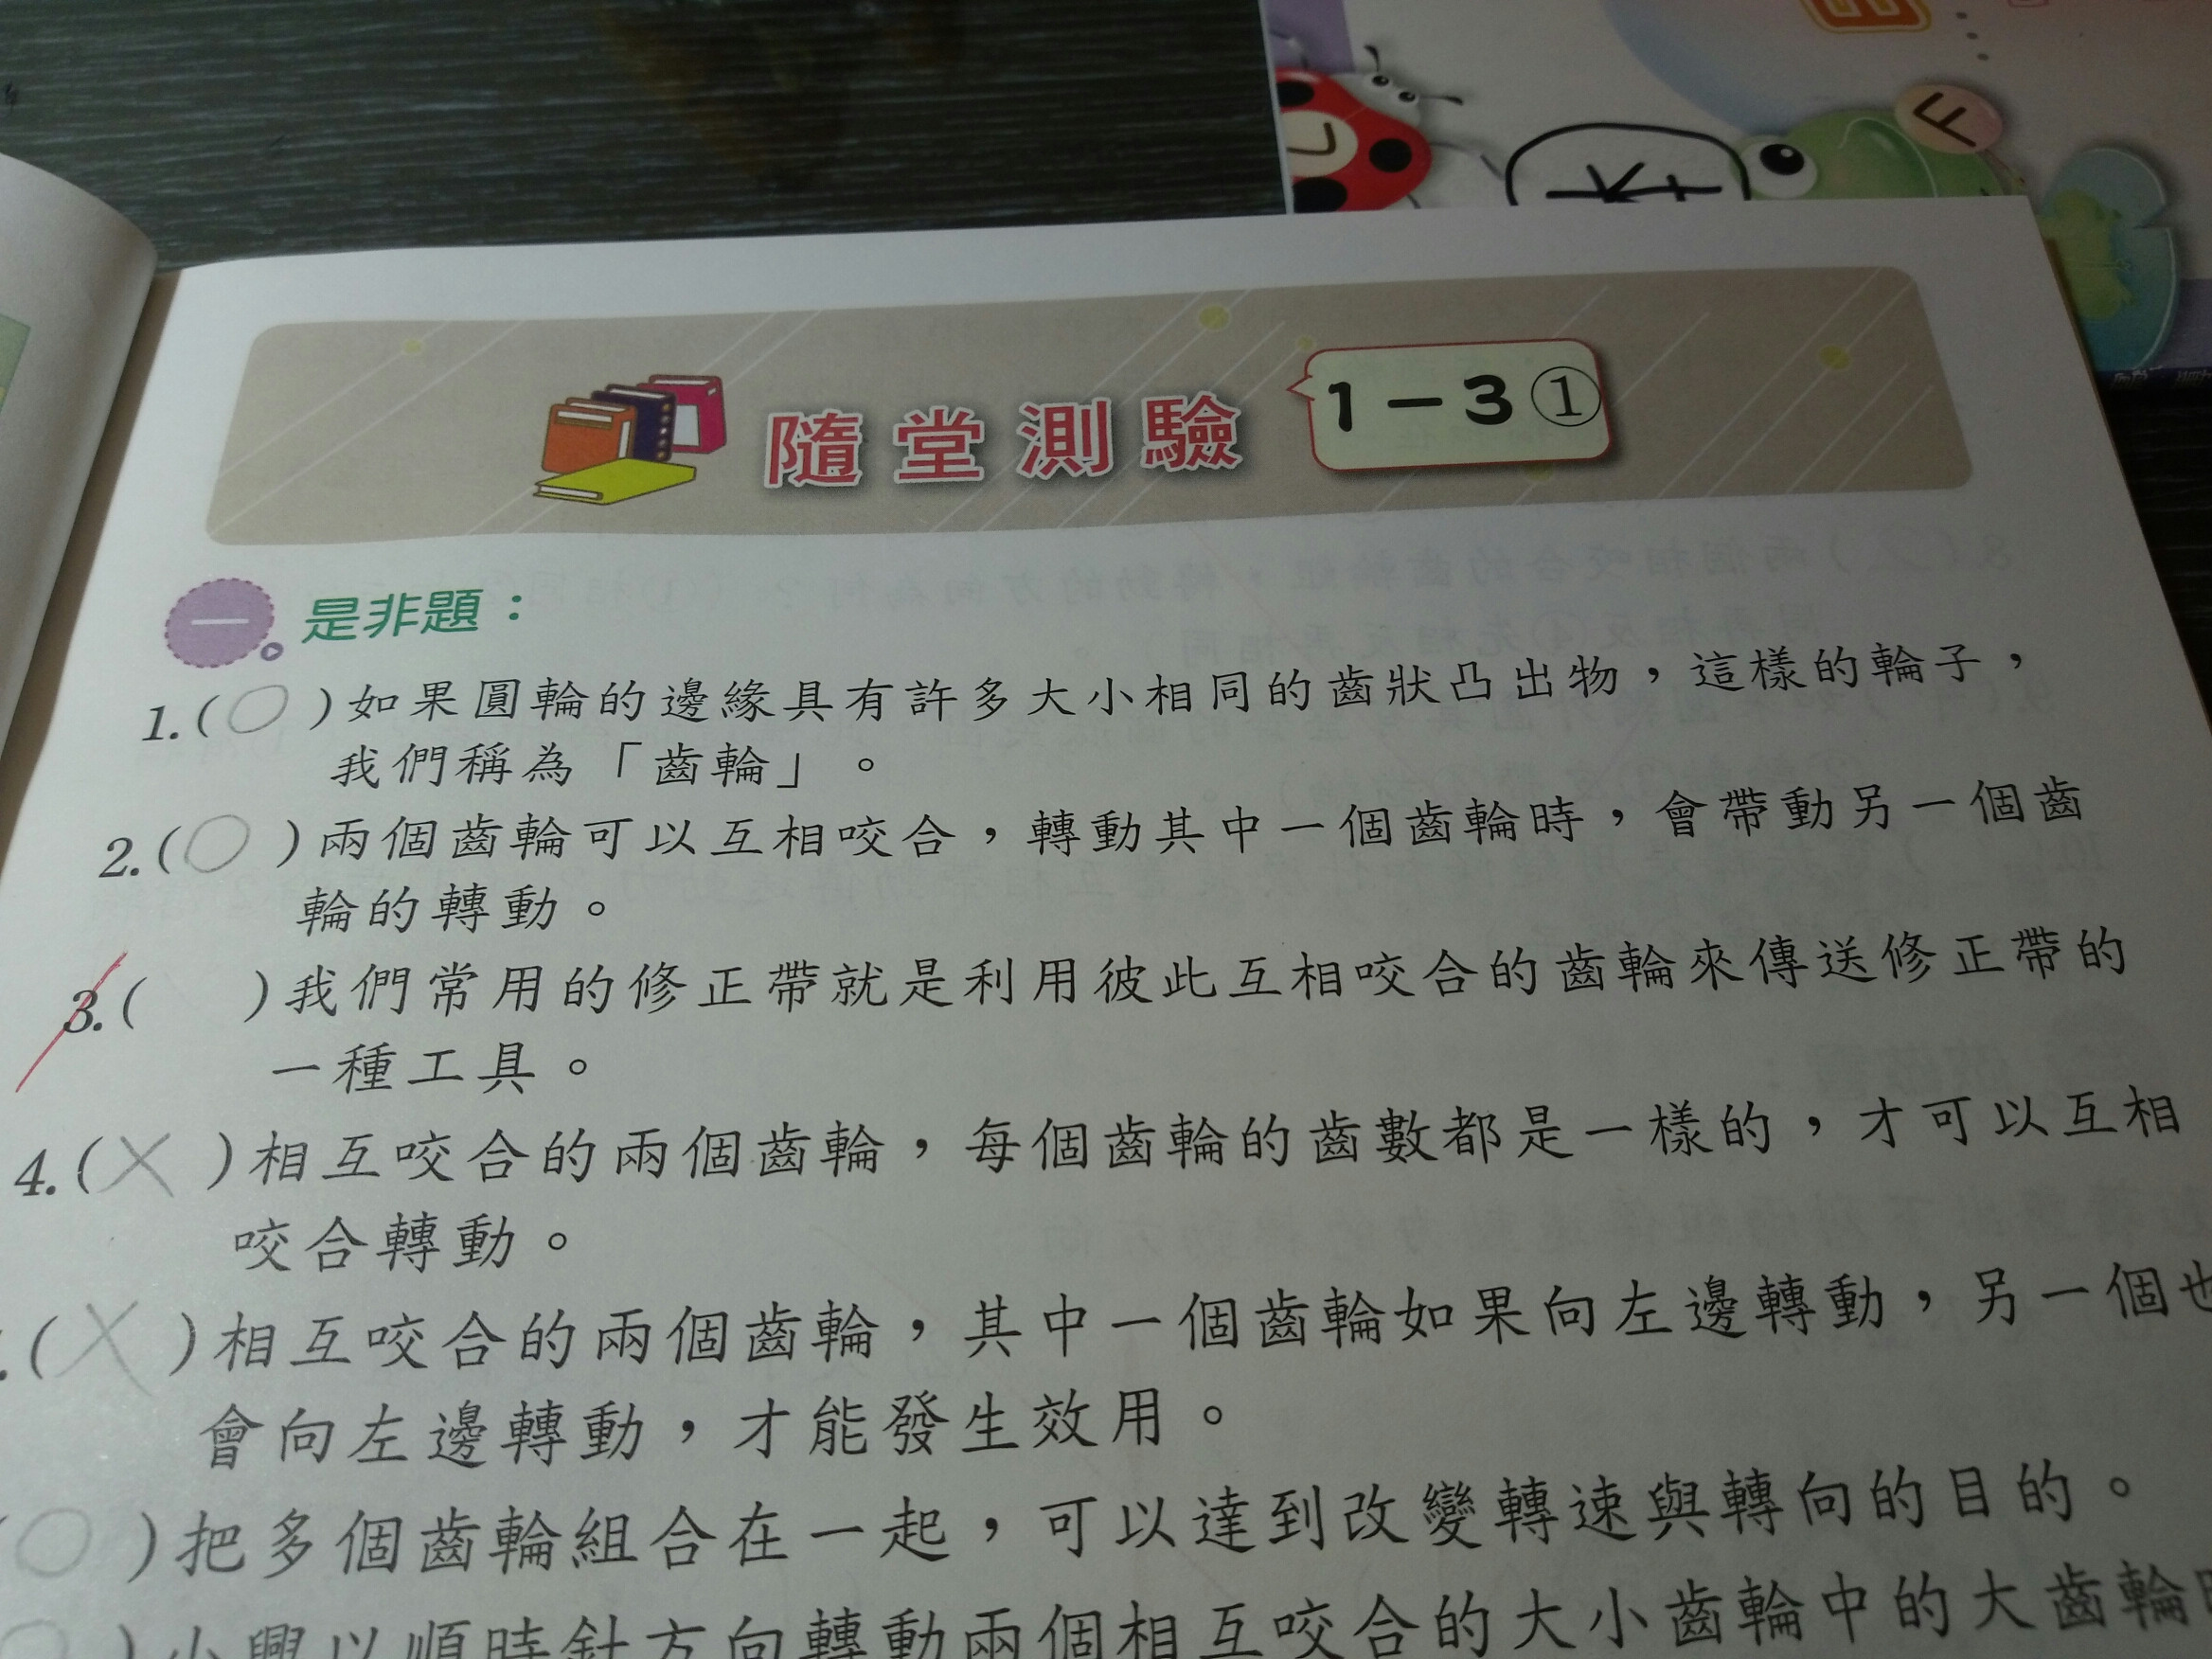 L
F
隨堂測驗 1－3①
一 是非題：
1.(○)如果圓輪的邊緣具有許多大小相同的齒狀凸出物，這樣的輪子，
我們稱為「齒輪」。
2.(○)兩個齒輪可以互相咬合，轉動其中一個齒輪時，會帶動另一個齒
輪的轉動。
3.( )我們常用的修正帶就是利用彼此互相咬合的齒輪來傳送修正帶的
一種工具。
4.(✕)相互咬合的兩個齒輪，每個齒輪的齒數都是一樣的，才可以互相
咬合轉動。
.(✕)相互咬合的兩個齒輪，其中一個齒輪如果向左邊轉動，另一個也
會向左邊轉動，才能發生效用。
(○)把多個齒輪組合在一起，可以達到改變轉速與轉向的目的。
)小興以順時針方向轉動兩個相互咬合的大小齒輪中的大齒輪時